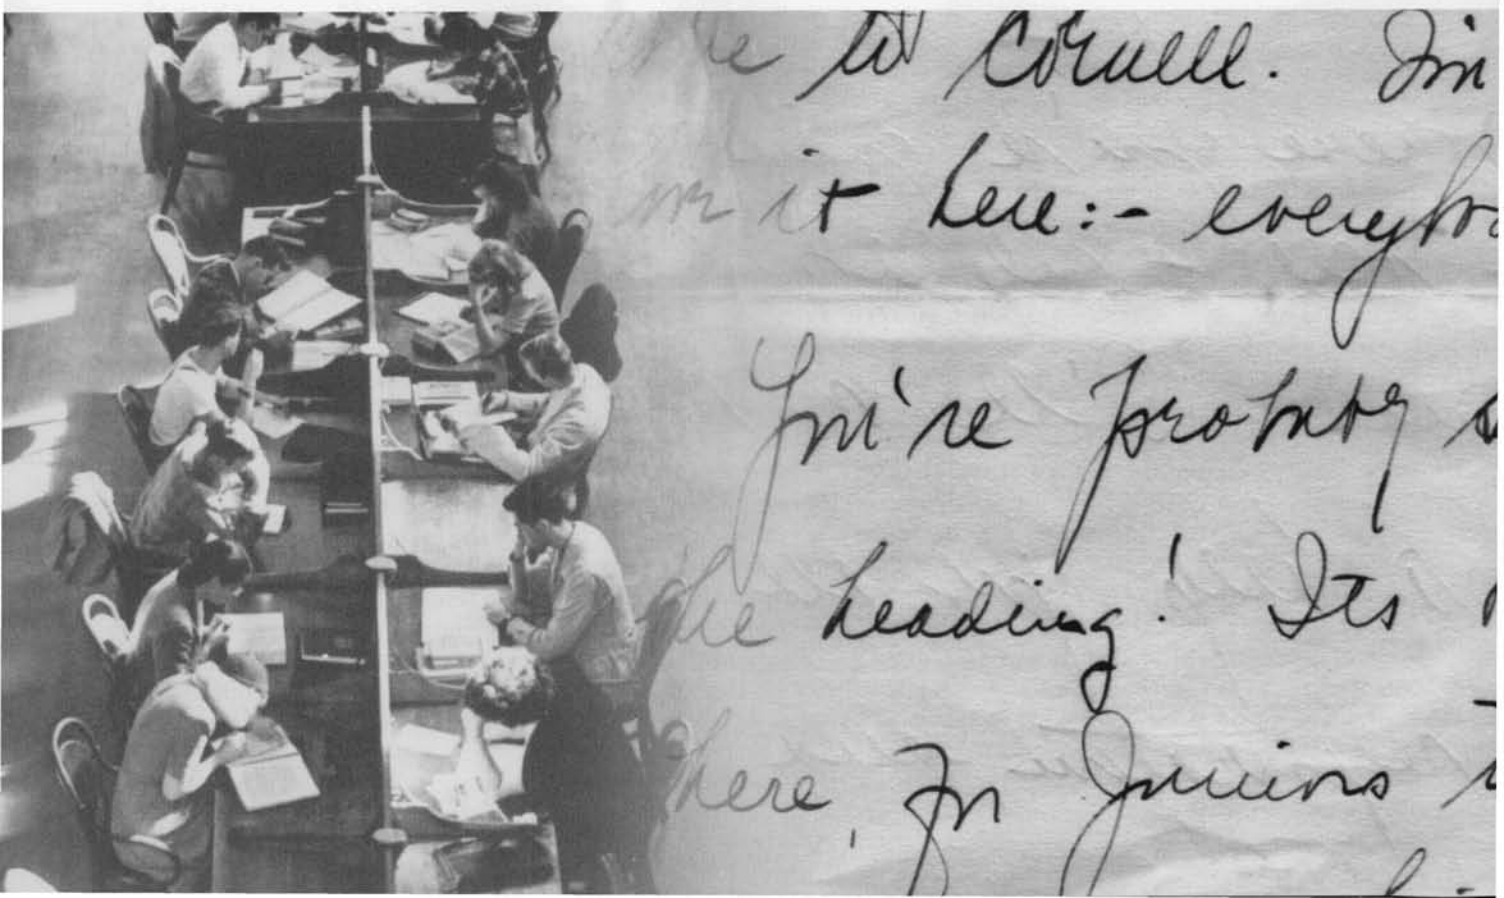 to Cornell. Jim
it here:- everybo
You're probably s
the heading! Its
here, for Juniors